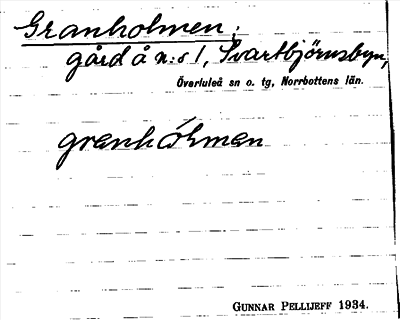 Granholmen;
gård å n:s 1, Svartbjörnsbyn,
Överluleå sn o. tg, Norrbottens län.
granhólman
GUNNAR PELLIJEFF 1934.